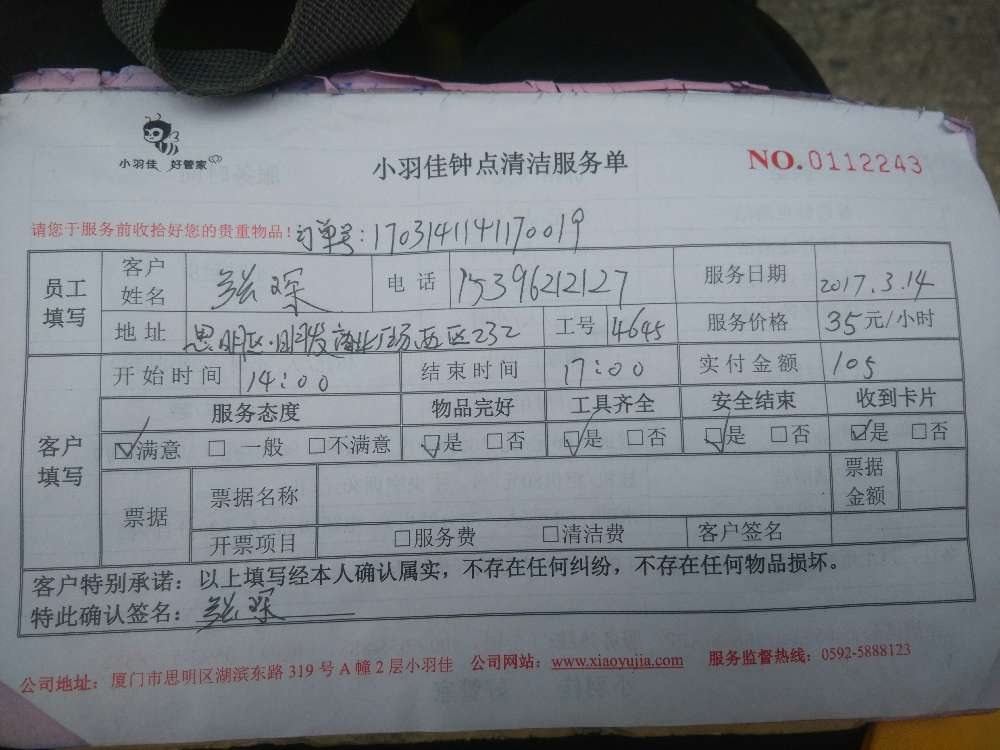 小羽佳 好管家
小羽佳钟点清洁服务单
NO.0112243
请您于服务前收拾好您的贵重物品！订单号:1703141141170019
员工填写 客户姓名 张琛 电话 15396212127 服务日期 2017.3.14
地址 思明区.明发商业广场西区232 工号 4645 服务价格 35元/小时
客户填写 开始时间 14:00 结束时间 17:00 实付金额 105
服务态度 物品完好 工具齐全 安全结束 收到卡片
☑满意 □一般 □不满意 ☑是 □否 ☑是 □否 ☑是 □否 ☑是 □否
票据 票据名称 票据金额
开票项目 □服务费 □清洁费 客户签名
客户特别承诺：以上填写经本人确认属实，不存在任何纠纷，不存在任何物品损坏。
特此确认签名：张琛
公司地址：厦门市思明区湖滨东路319号A幢2层小羽佳 公司网站：www.xiaoyujia.com 服务监督热线：0592-5888123